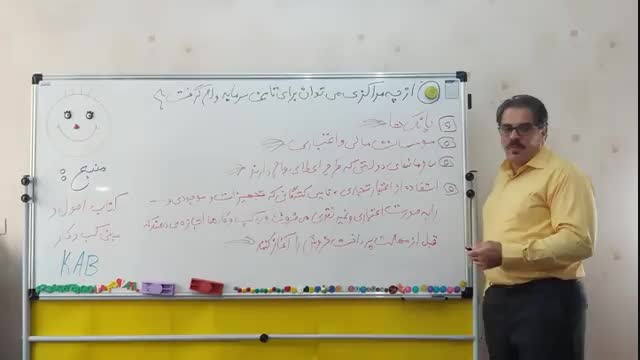 از چه مراکزی می توان برای تامین سرمایه وام گرفت؟
بانک ها
موسسات مالی و اعتباری
سازمانهای دولتی که طرح اعطای وام دارند
استفاده از اعتبار تجاری، تامین کنندگان که تجهیزات و موجودی و ...
را به صورت اعتباری و غیر نقدی می فروشند و به کسب و کارها اجازه می دهند که
قبل از مهلت پرداخت، فروش را آغاز کنند
منبع:
کتاب اصول و
مبانی کسب و کار
KAB